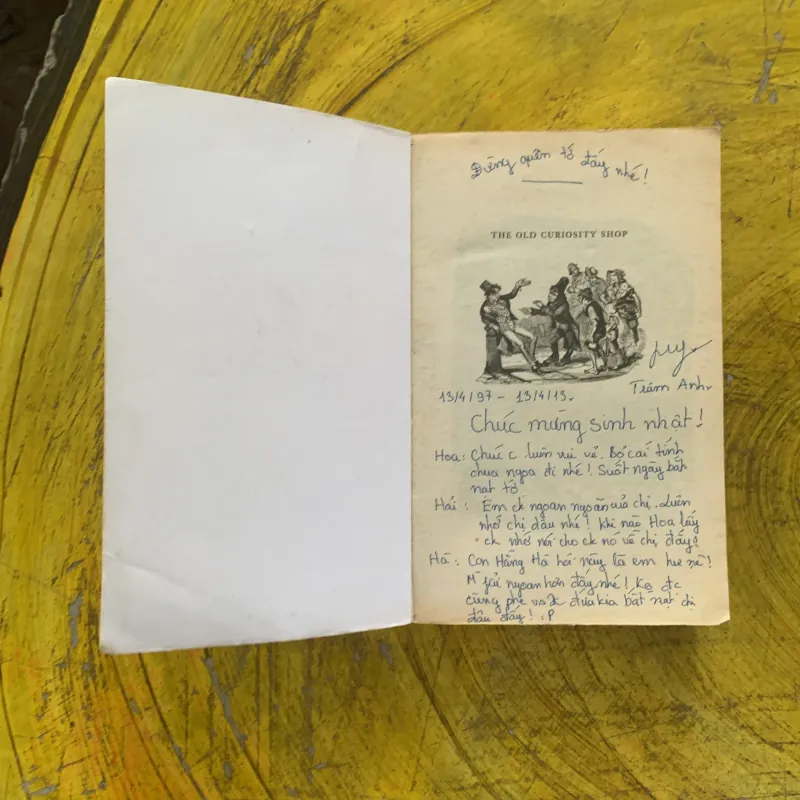 Đừng quên tớ đấy nhé!
THE OLD CURIOSITY SHOP
Trâm Anh
13/4/97 - 13/4/13
Chúc mừng sinh nhật!
Hoa: Chúc c luôn vui vẻ. Bỏ cái tính
chua ngoa đi nhé! Suốt ngày bắt
nạt tớ
Hải: Em ck ngoan ngoãn của chị. Luôn
nhớ chị dâu nhé! Khi nào Hoa lấy
ck nhớ nói cho ck nó về chị đấy!
Hà: Con Hằng Hà hói này là em hư nè!
M fải ngoan hơn đấy nhé! Ko đc
cùng phe vs đứa kia bắt nạt chị
dâu đấy! :P